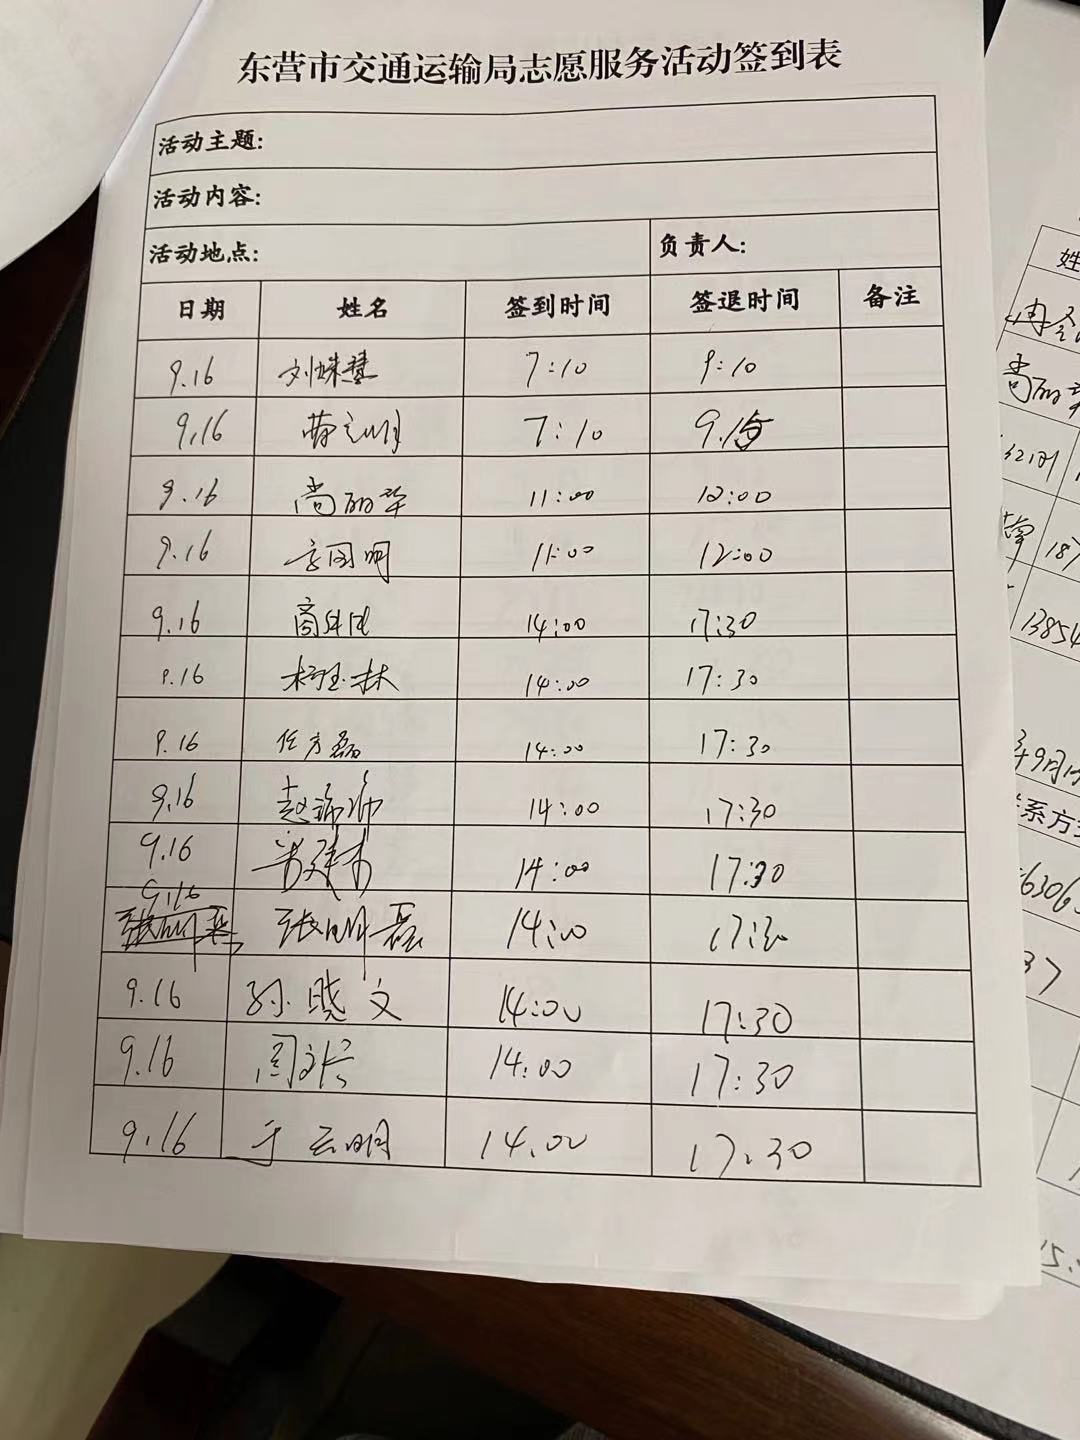 东营市交通运输局志愿服务活动签到表
活动主题:
活动内容:
活动地点: 负责人:
日期 姓名 签到时间 签退时间 备注
9.16 刘姝慧 7:10 9:10
9.16 7:10 9.15
9.16 尚丽华 11:00 12:00
9.16 方国明 11:00 12:00
9.16 14:00 17:30
9.16 杨玉林 14:00 17:30
9.16 任方磊 14:00 17:30
9.16 赵 14:00 17:30
9.16 14:00 17:30
9.16 张明磊 14:00 17:30
9.16 孙晓文 14:00 17:30
9.16 周文 14:00 17:30
9.16 于云明 14.00 17.30
姓
尚丽华
187
13854
9月
系方式
63063
37